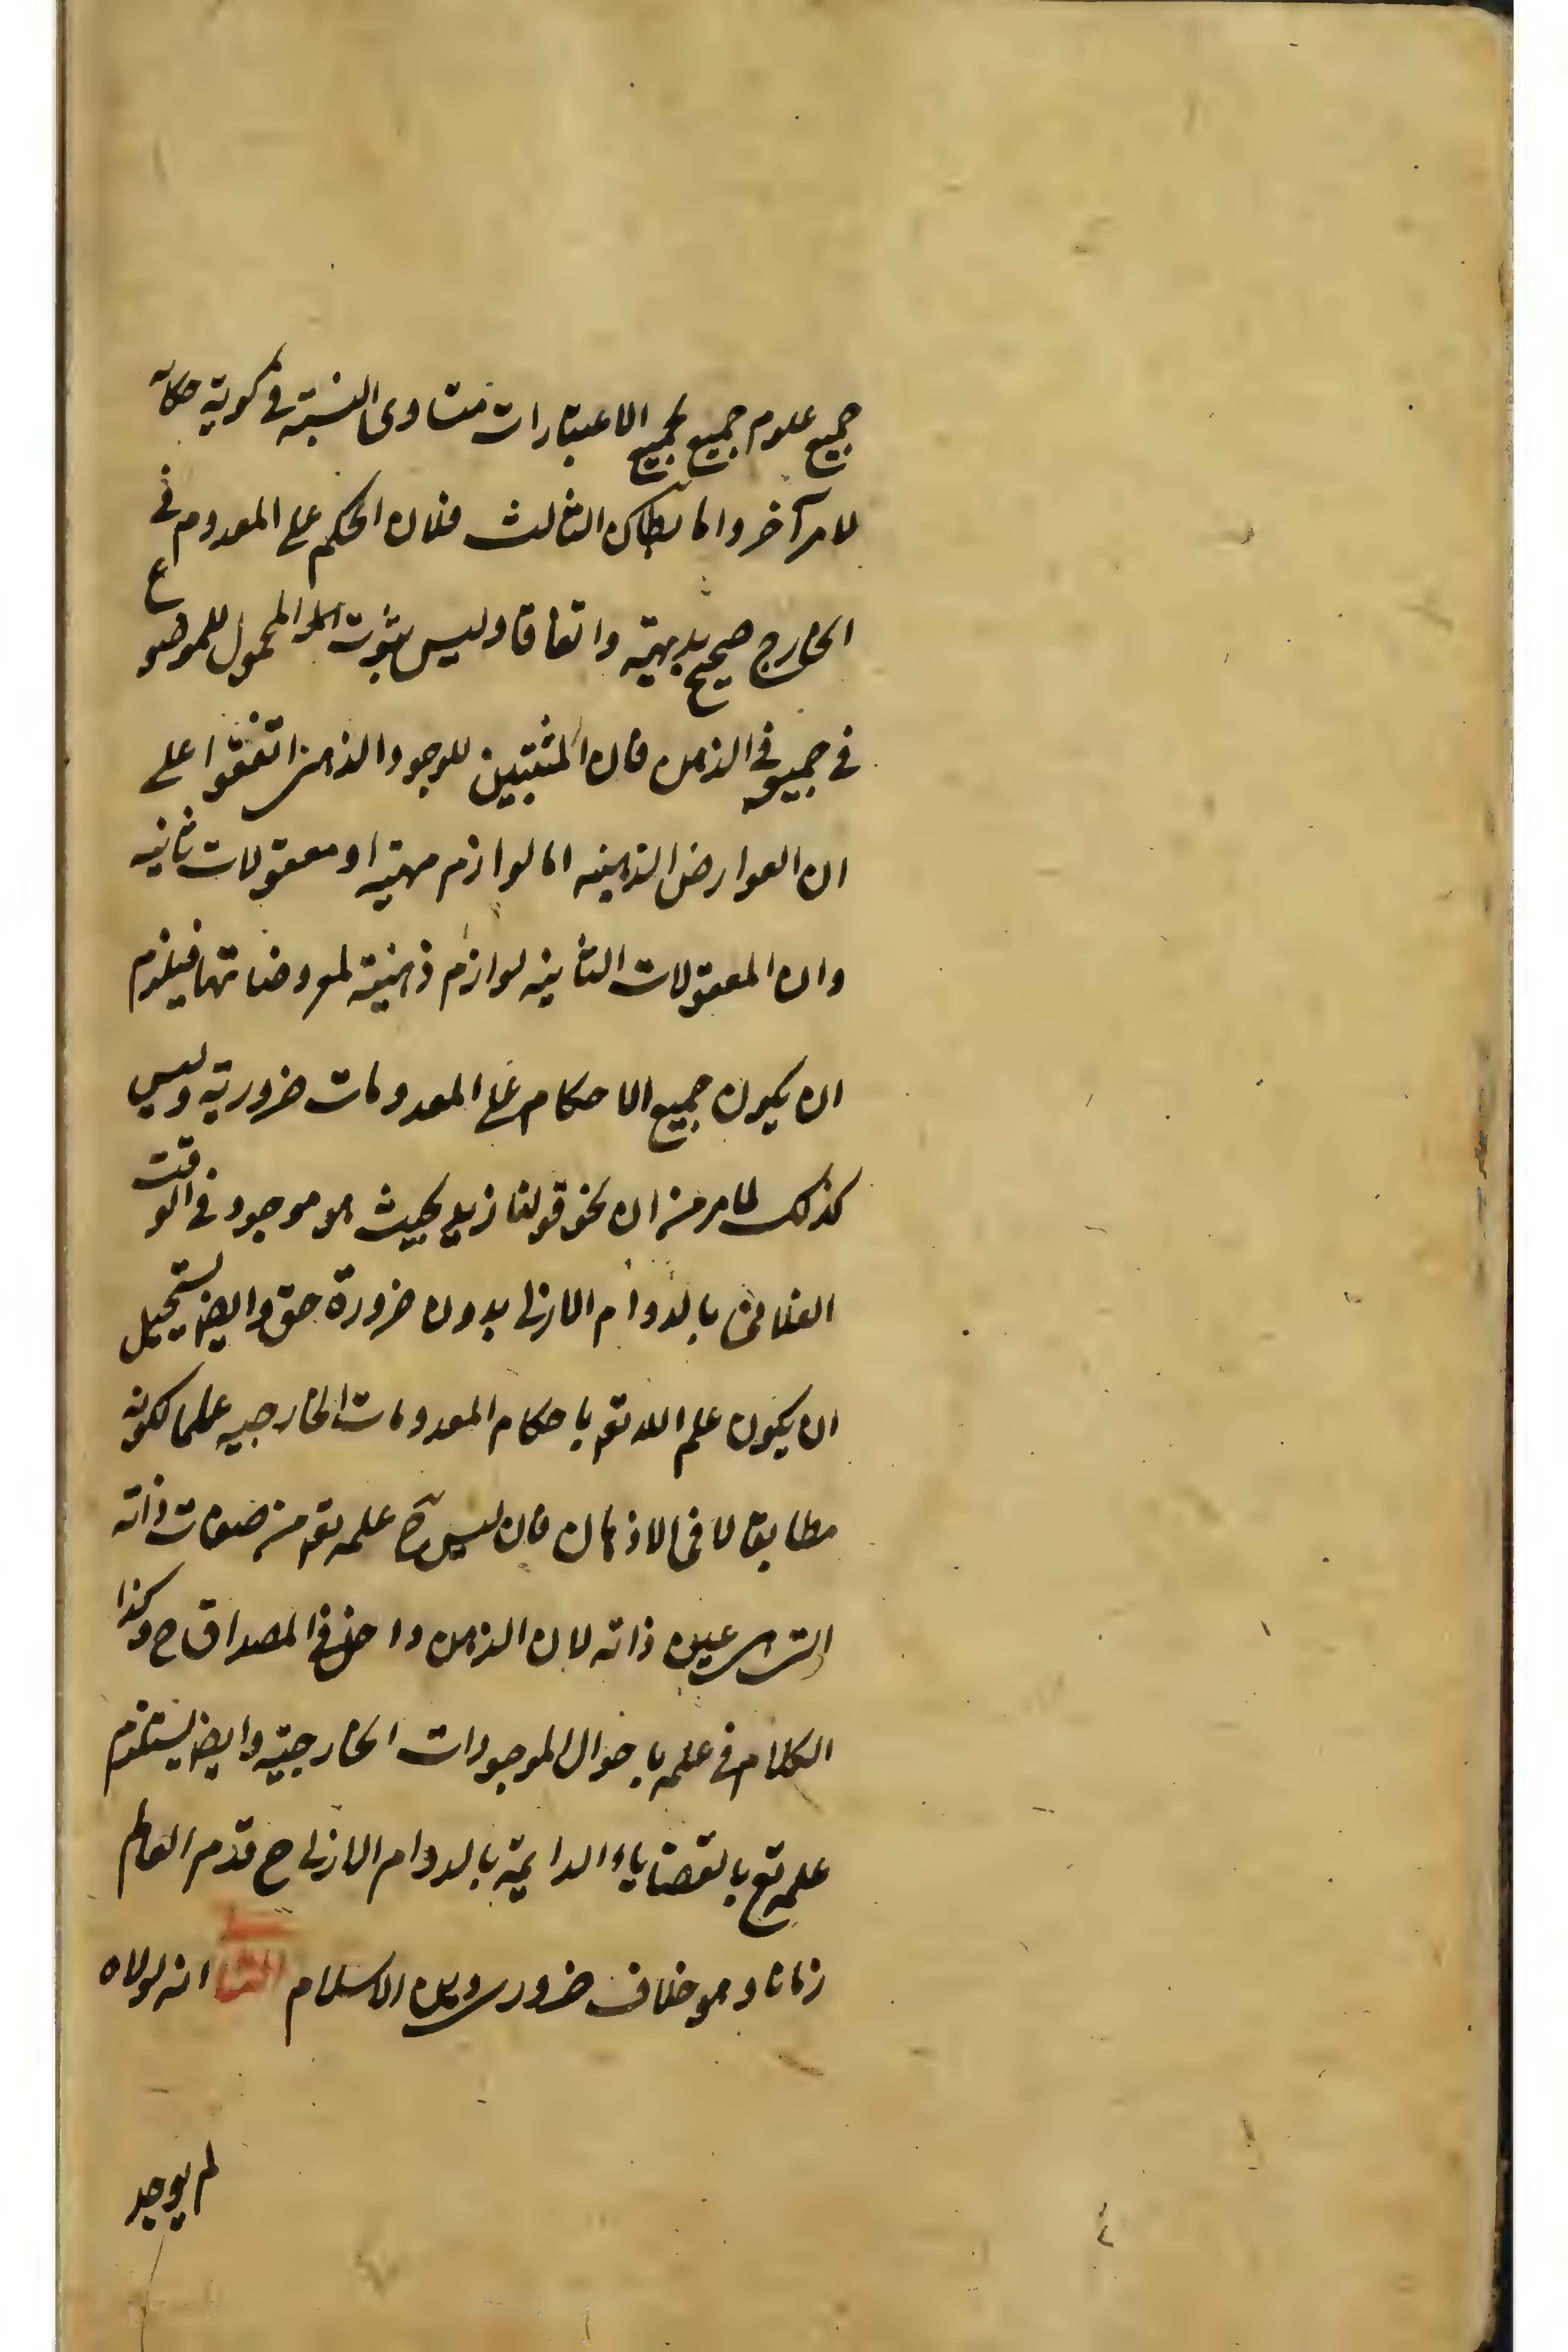 جميع علوم جميع بجميع الاعتبارات متساوى النسبة فى كونه حكاية
لامر آخر واما بطلان الثالث فلان الحكم على المعدوم فى
الخارج صحيح بديهة واتفاقا وليس بثبوت المحمول للموضوع
فى جميعه فى الذهن فان المثبتين للوجود الذهنى اتفقوا على
ان العوارض الذهنيه اما لوازم مهية او معقولات ثانيه
وان المعقولات الثانيه لوازم ذهنية لمعروضاتها فيلزم
ان يكون جميع الاحكام على المعدومات ضرورية وليس
كذلك لما مر من ان نحو قولنا زيد بحيث هو موجود فى الوقت
الفلانى بالدوام الازلى بدون ضرورة حق وايضا يستحيل
ان يكون علم الله تعـ باحكام المعدومات الخارجيه علما لكونه
مطابقا لا فى الاذهان فان ليس ح علمه تعـ من صفات ذاته
التى هى عين ذاته لان الذهن داخل فى المصداق ح وكذا
الكلام فى علمه باحوال الموجودات الخارجية وايضا يستلزم
علمه تع بالقضاياء الدايمة بالدوام الازلى ح قدم العالم
زمانا وهو خلاف ضرورى دين الاسلام انه لولاه
لم يوجد